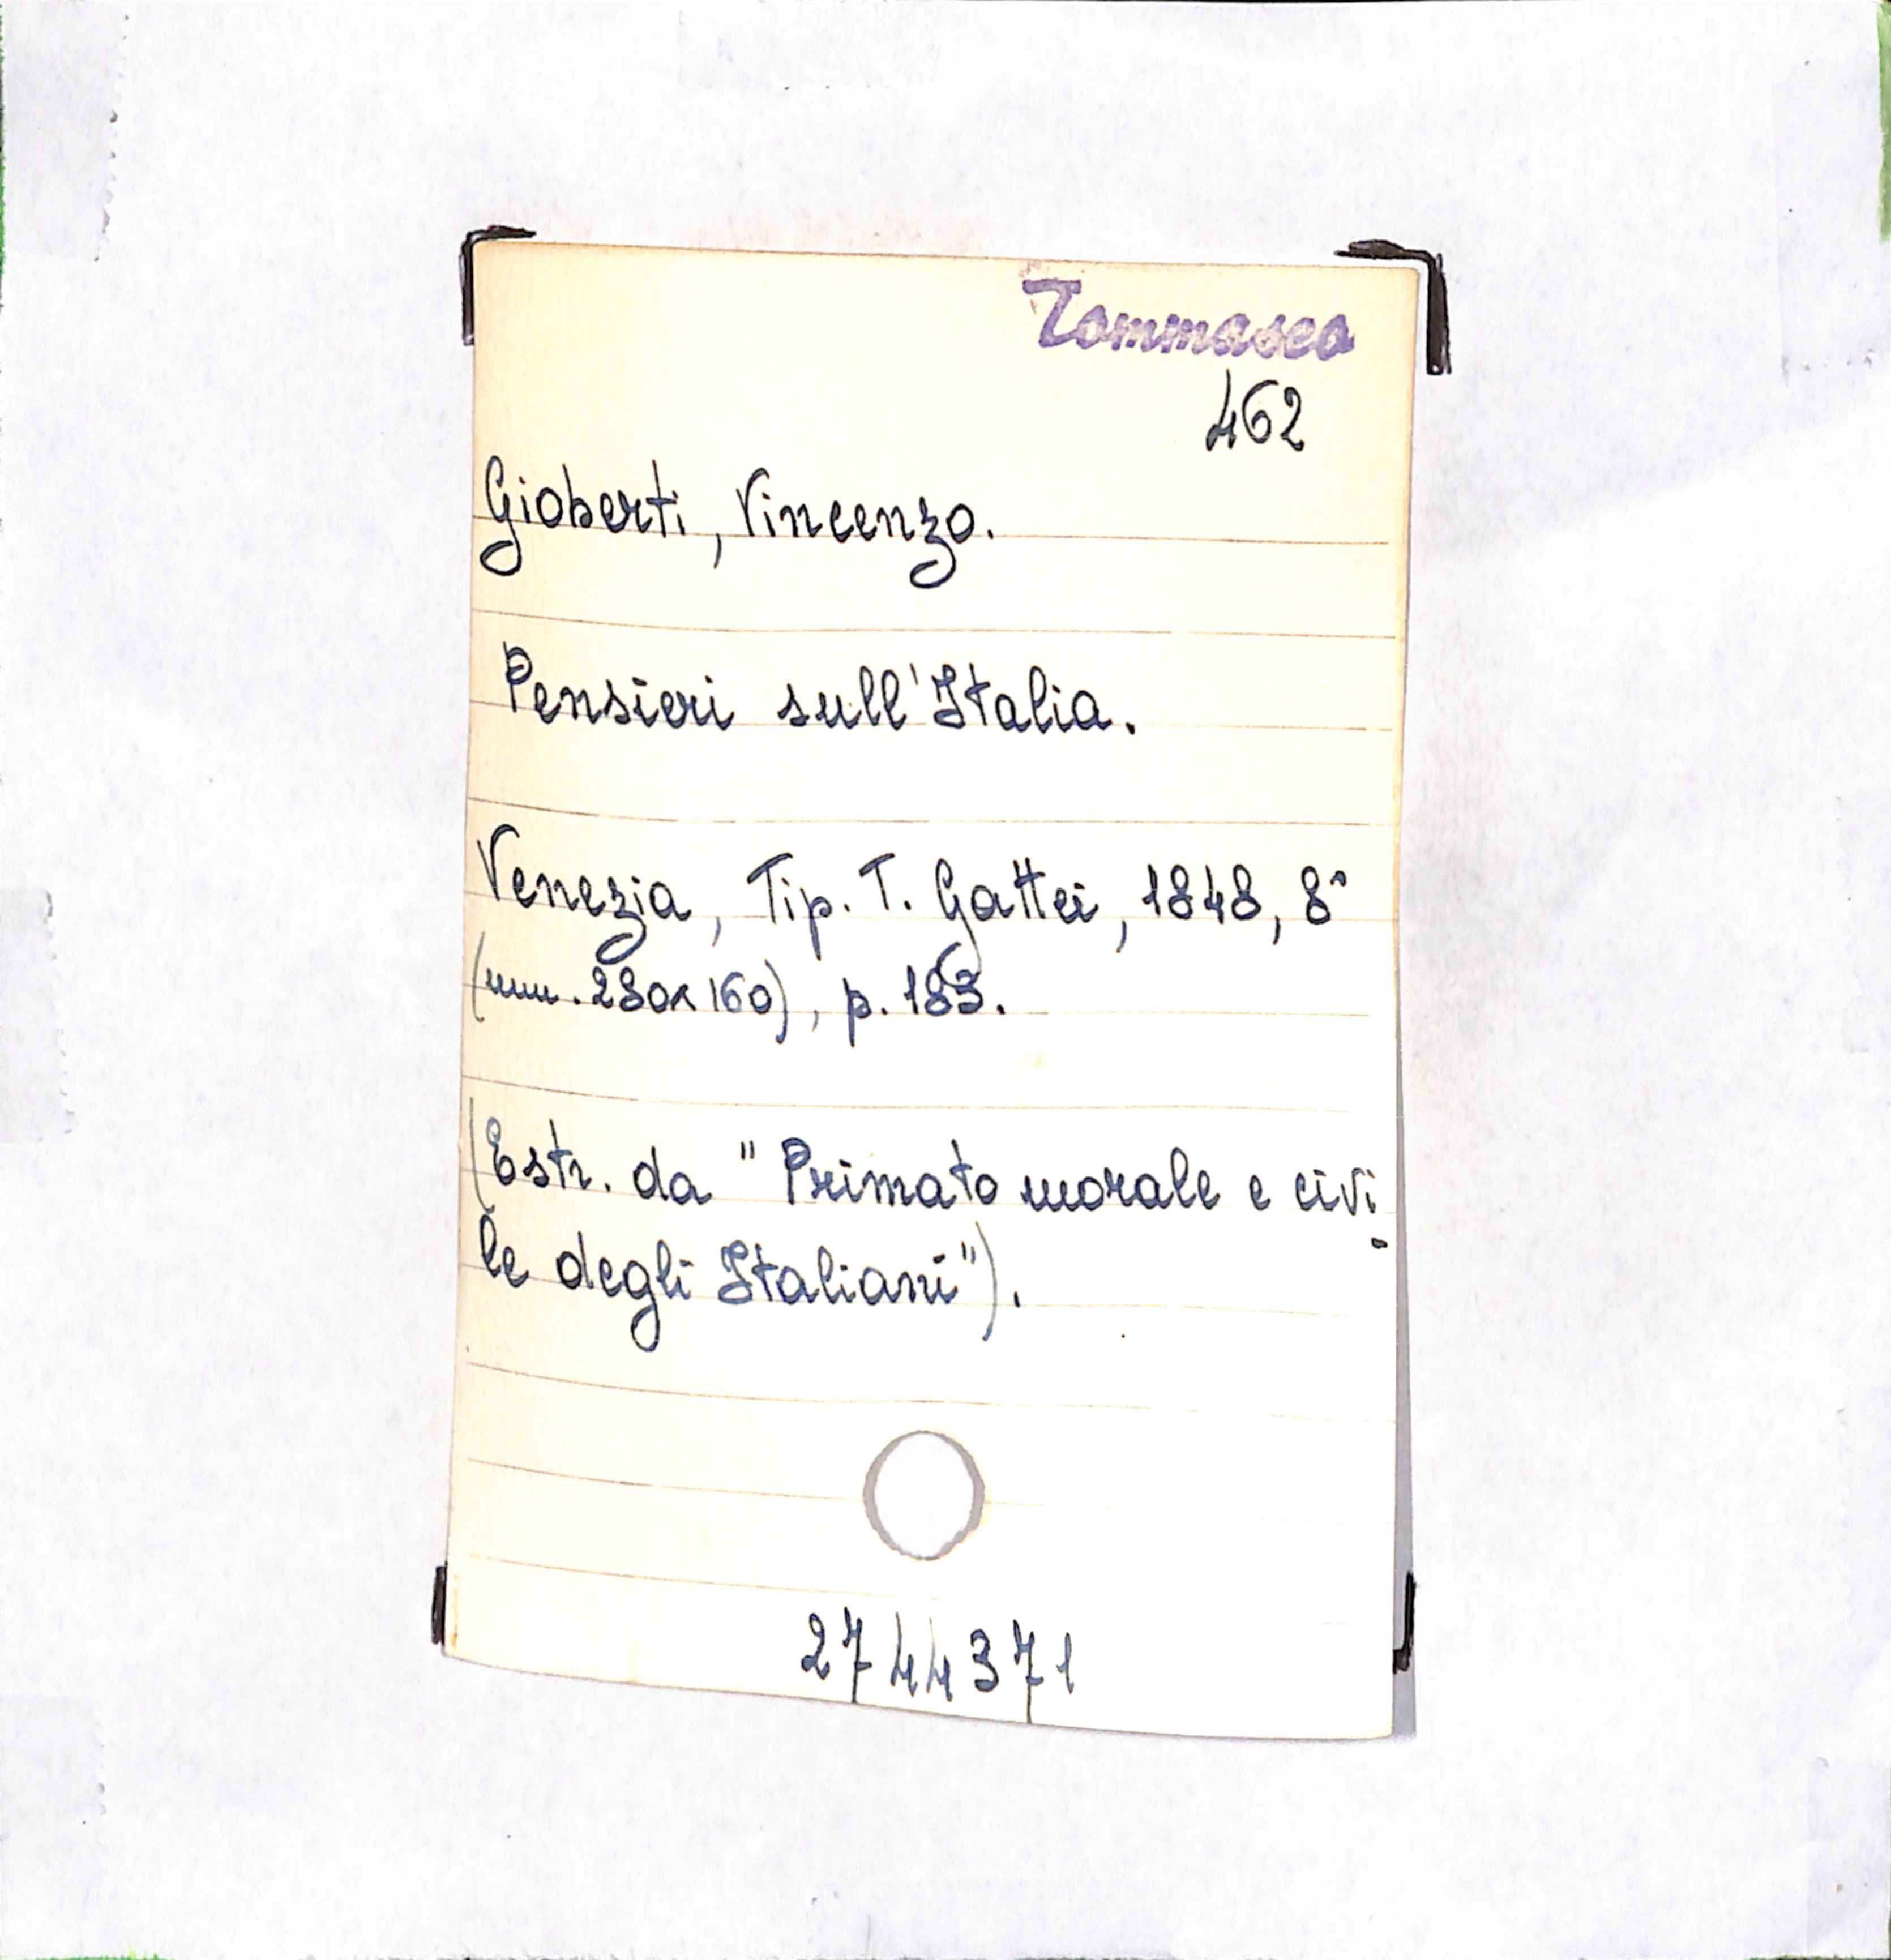 Tommaseo
462
Gioberti, Vincenzo.
Pensieri sull'Italia.
Venezia, Tip. T. Gattei, 1848, 8°
(mm. 230x160), p. 183.
(Estr. da "Primato morale e civi-
le degli Italiani").
2744371